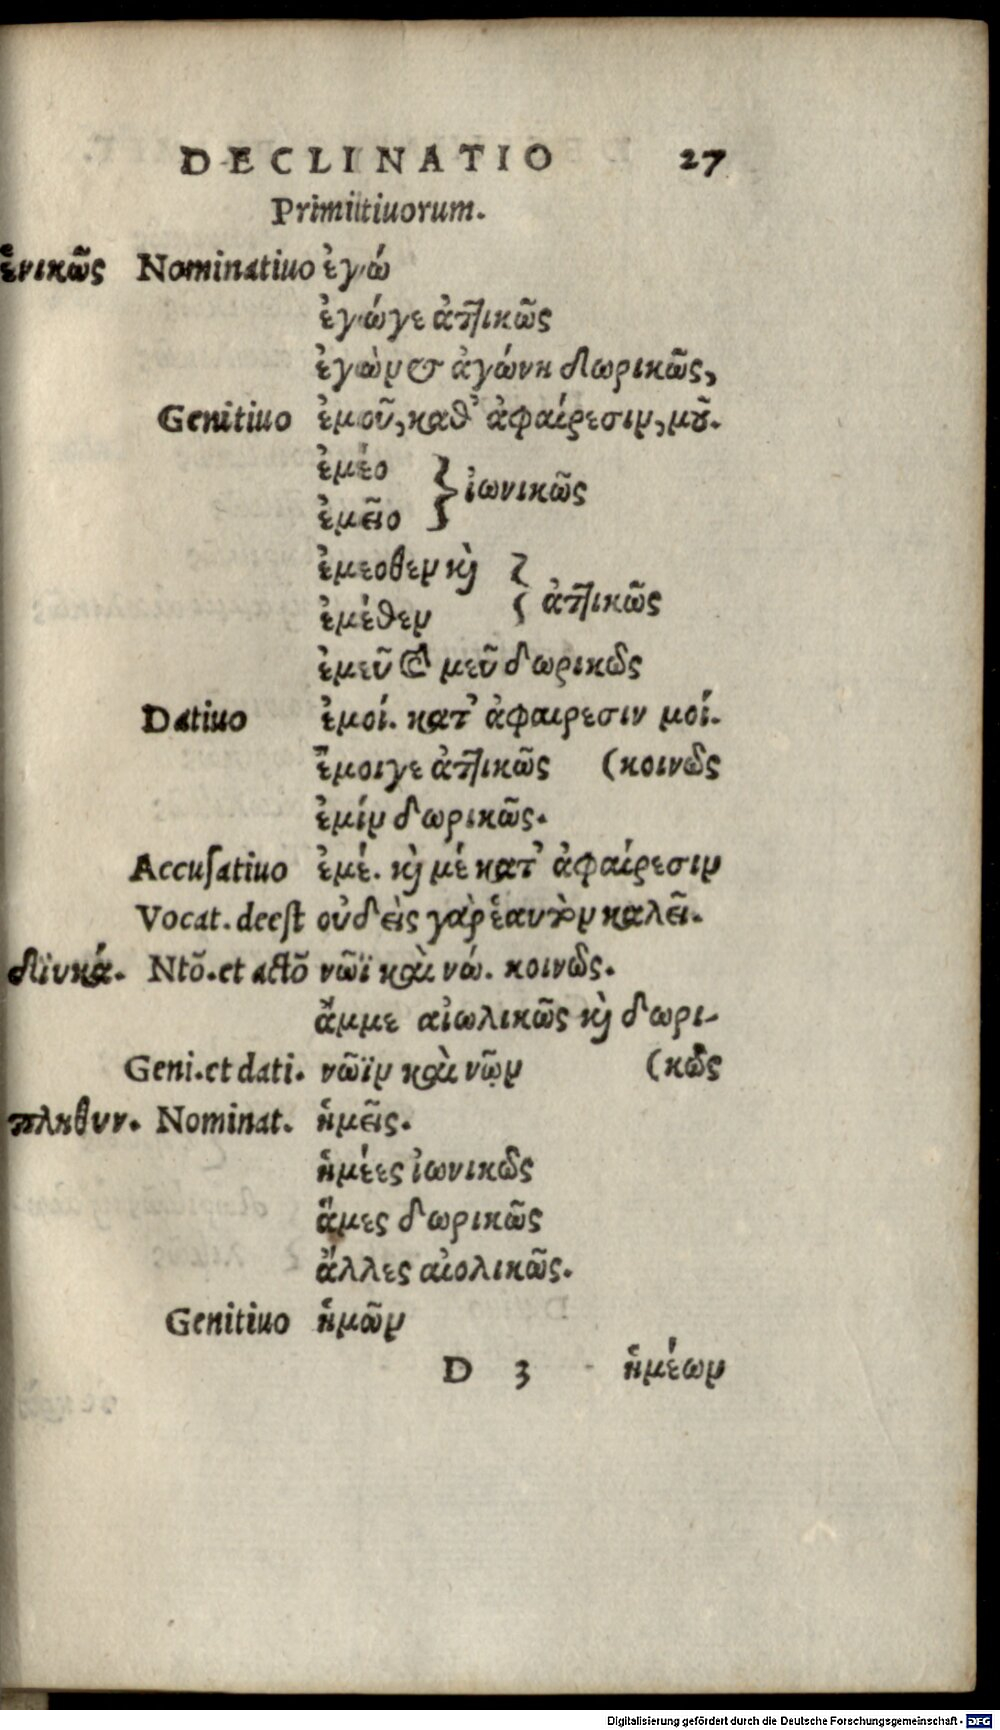 DECLINATIO 27
Primitiuorum.
ἑνικῶς Nominatiuo ἐγώ
ἐγώγε ἀττικῶς
ἐγὼν & ἀγώνη δωρικῶς,
Genitiuo ἐμοῦ, καθ' ἀφαίρεσιν, μοῦ.
ἐμέο
ἐμεῖο } ἰωνικῶς
ἐμεοθεν καὶ
ἐμέθεν } ἀττικῶς
ἐμεῦ & μεῦ δωρικῶς
Datiuo ἐμοί. κατ' ἀφαιρεσιν μοί.
ἔμοιγε ἀττικῶς (κοινῶς
ἐμίν δωρικῶς.
Accusatiuo ἐμέ. καὶ μέ κατ' ἀφαίρεσιν
Vocat. deest οὐδεὶς γὰρ ἑαυτὸν καλεῖ.
δϊυκά. Ntõ. et actõ νῶϊ καὶ νώ. κοινῶς.
ἄμμε αἰωλικῶς καὶ δωρι-
Geni. et dati. νῶϊν καὶ νῷν (κῶς
πληθυν. Nominat. ἡμεῖς.
ἡμέες ἰωνικῶς
ἅμες δωρικῶς
ἄλλες αἰολικῶς.
Genitiuo ἡμῶν
D 3 ἡμέων
Digitalisierung gefördert durch die Deutsche Forschungsgemeinschaft - DFG